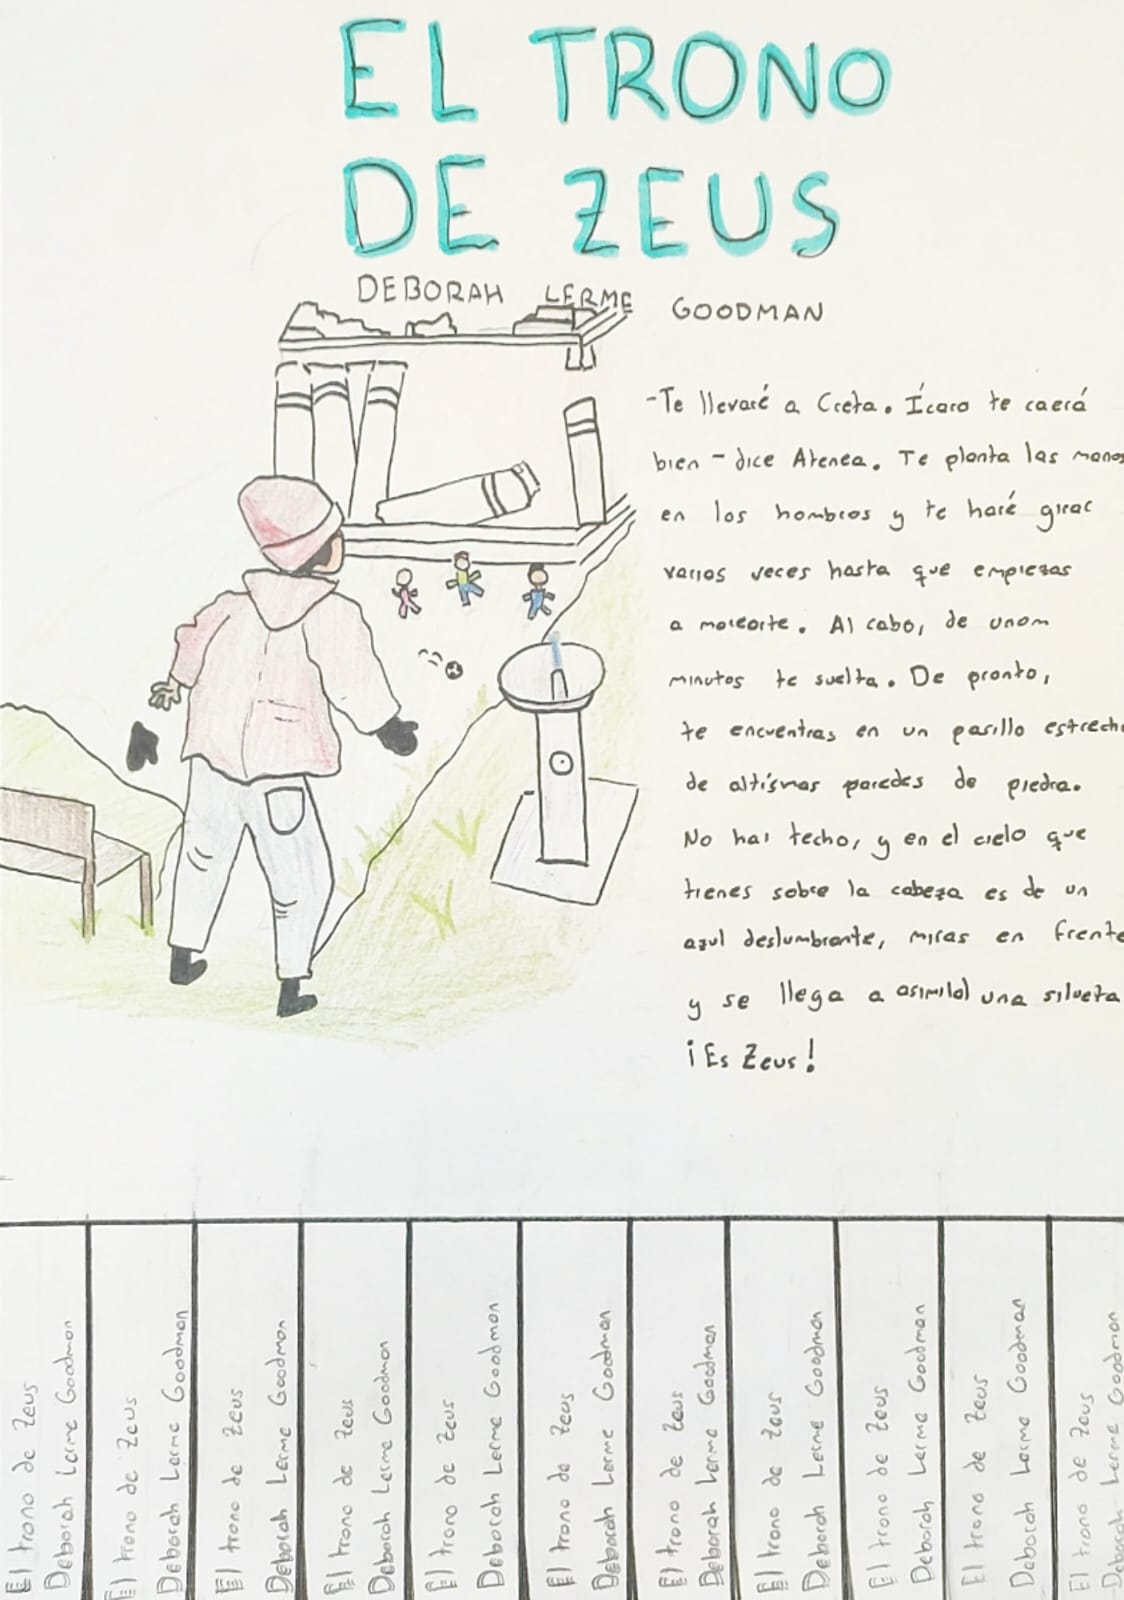 EL TRONO
DE ZEUS
DEBORAH LERME GOODMAN
-Te llevaré a Creta. Ícaro te caerá
bien - dice Atenea. Te planta las manos
en los hombros y te haré girar
varios veces hasta que empiezas
a marearte. Al cabo, de unom
minutos te suelta. De pronto,
te encuentras en un pasillo estrecho
de altísmas paredes de piedra.
No hai techo, y en el cielo que
tienes sobre la cabeza es de un
azul deslumbrante, miras en frente
y se llega a asimilal una silueta
¡Es Zeus!
El trono de Zeus
Deborah Lerme Goodman
El trono de Zeus
Deborah Lerme Goodman
El trono de Zeus
Deborah Lerme Goodman
El trono de Zeus
Deborah Lerme Goodman
El trono de Zeus
Deborah Lerme Goodman
El trono de Zeus
Deborah Lerme Goodman
El trono de Zeus
Deborah Lerme Goodman
El trono de Zeus
Deborah Lerme Goodman
El trono de Zeus
Deborah Lerme Goodman
El trono de Zeus
Deborah Lerme Goodman
El trono de Zeus
Deborah Lerme Goodman